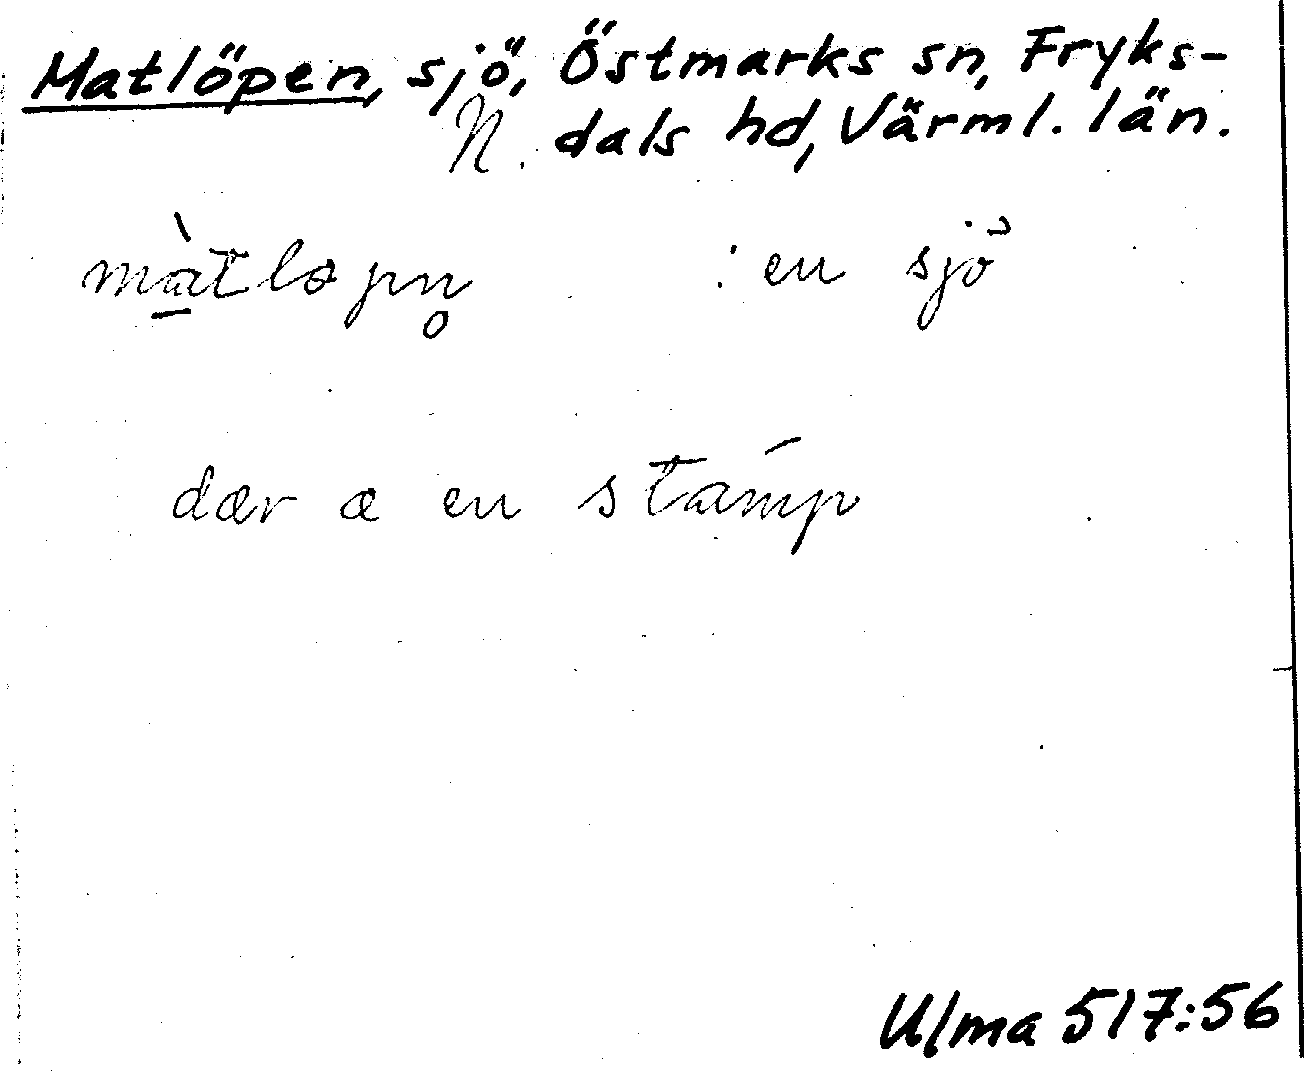 Matlöpen, sjö, Östmarks sn, Fryks-
N. dals hd, Värml. län.
màtløpn̥ : en sjö
dær æ en stámp
Ulma 517:56